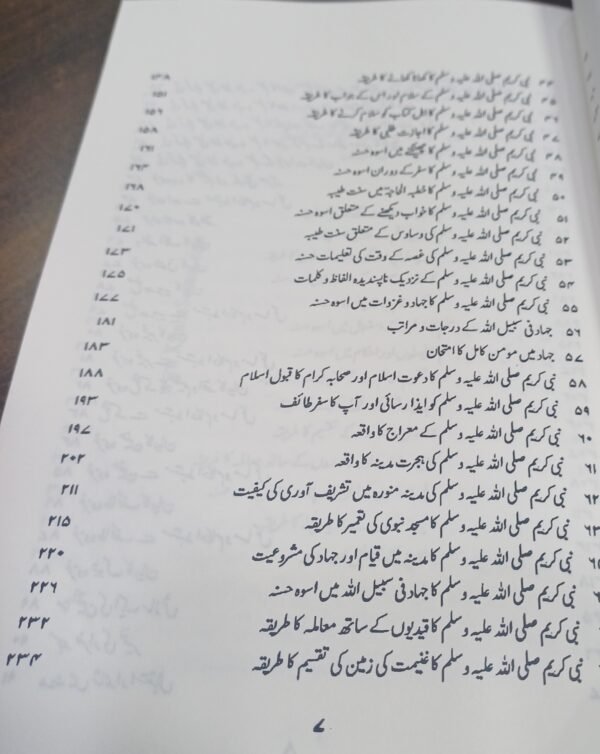 ۴۴ نبی کریم صلی اللہ علیہ وسلم کا کھانا کھانے کا طریقہ ۱۴۸
۴۵ نبی کریم صلی اللہ علیہ وسلم کے سلام اور اس کے جواب کا طریقہ ۱۵۱
۴۶ نبی کریم صلی اللہ علیہ وسلم کا اہل کتاب کو سلام کرنے کا طریقہ ۱۵۶
۴۷ نبی کریم صلی اللہ علیہ وسلم کا اجازت طلبی کا طریقہ ۱۵۸
۴۸ نبی کریم صلی اللہ علیہ وسلم کا چھینکنے میں اسوہ حسنہ ۱۶۱
۴۹ نبی کریم صلی اللہ علیہ وسلم کا سفر کے دوران اسوہ حسنہ ۱۶۳
۵۰ نبی کریم صلی اللہ علیہ وسلم کا خطبہ الحاجۃ میں سنت طیبہ ۱۶۸
۵۱ نبی کریم صلی اللہ علیہ وسلم کا خواب دیکھنے کے متعلق اسوہ حسنہ ۱۷۰
۵۲ نبی کریم صلی اللہ علیہ وسلم کی وساوس کے متعلق سنت طیبہ ۱۷۱
۵۳ نبی کریم صلی اللہ علیہ وسلم کی غصہ کے وقت کی تعلیمات حسنہ ۱۷۳
۵۴ نبی کریم صلی اللہ علیہ وسلم کے نزدیک ناپسندیدہ الفاظ و کلمات ۱۷۵
۵۵ نبی کریم صلی اللہ علیہ وسلم کا جہاد و غزوات میں اسوہ حسنہ ۱۷۷
۵۶ جہاد فی سبیل اللہ کے درجات و مراتب ۱۸۱
۵۷ جہاد میں مومن کامل کا امتحان ۱۸۳
۵۸ نبی کریم صلی اللہ علیہ وسلم کا دعوت اسلام اور صحابہ کرام کا قبول اسلام ۱۸۸
۵۹ نبی کریم صلی اللہ علیہ وسلم کو ایذا رسائی اور آپ کا سفر طائف ۱۹۳
۶۰ نبی کریم صلی اللہ علیہ وسلم کے معراج کا واقعہ ۱۹۷
۶۱ نبی کریم صلی اللہ علیہ وسلم کی ہجرت مدینہ کا واقعہ ۲۰۲
۶۲ نبی کریم صلی اللہ علیہ وسلم کی مدینہ منورہ میں تشریف آوری کی کیفیت ۲۱۱
۶۳ نبی کریم صلی اللہ علیہ وسلم کا مسجد نبوی کی تعمیر کا طریقہ ۲۱۵
نبی کریم صلی اللہ علیہ وسلم کا مدینہ میں قیام اور جہاد کی مشروعیت ۲۲۰
نبی کریم صلی اللہ علیہ وسلم کا جہاد فی سبیل اللہ میں اسوہ حسنہ ۲۲۶
نبی کریم صلی اللہ علیہ وسلم کا قیدیوں کے ساتھ معاملہ کا طریقہ ۲۳۲
نبی کریم صلی اللہ علیہ وسلم کا غنیمت کی زمین کی تقسیم کا طریقہ ۲۳۴
۷